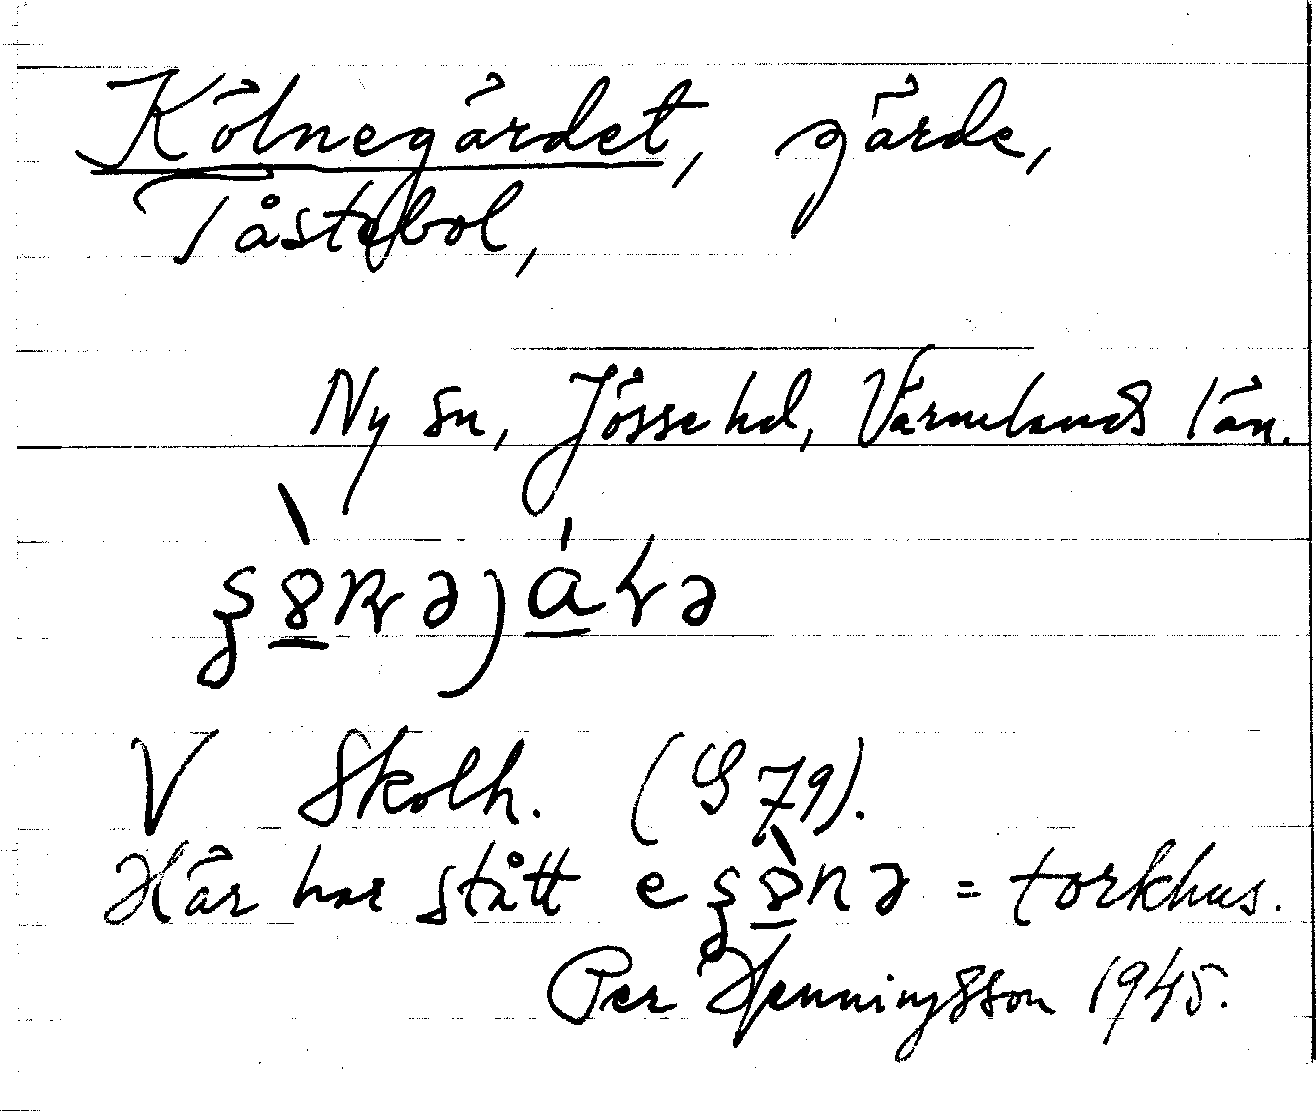 Kölnegärdet, gärde,
Tåstebol,
Ny sn, Jösse hd, Värmlands län.
V Skolh. (S 79).
Här har stått e = torkhus.
Per Henningsson 1945.